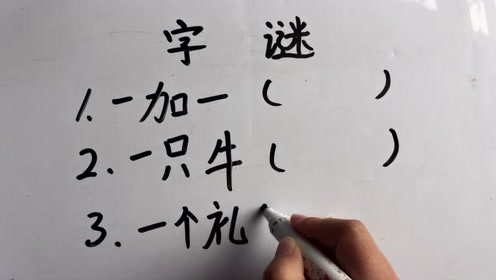 字 谜
1. 一加一 ( )
2. 一只牛 ( )
3. 一个礼